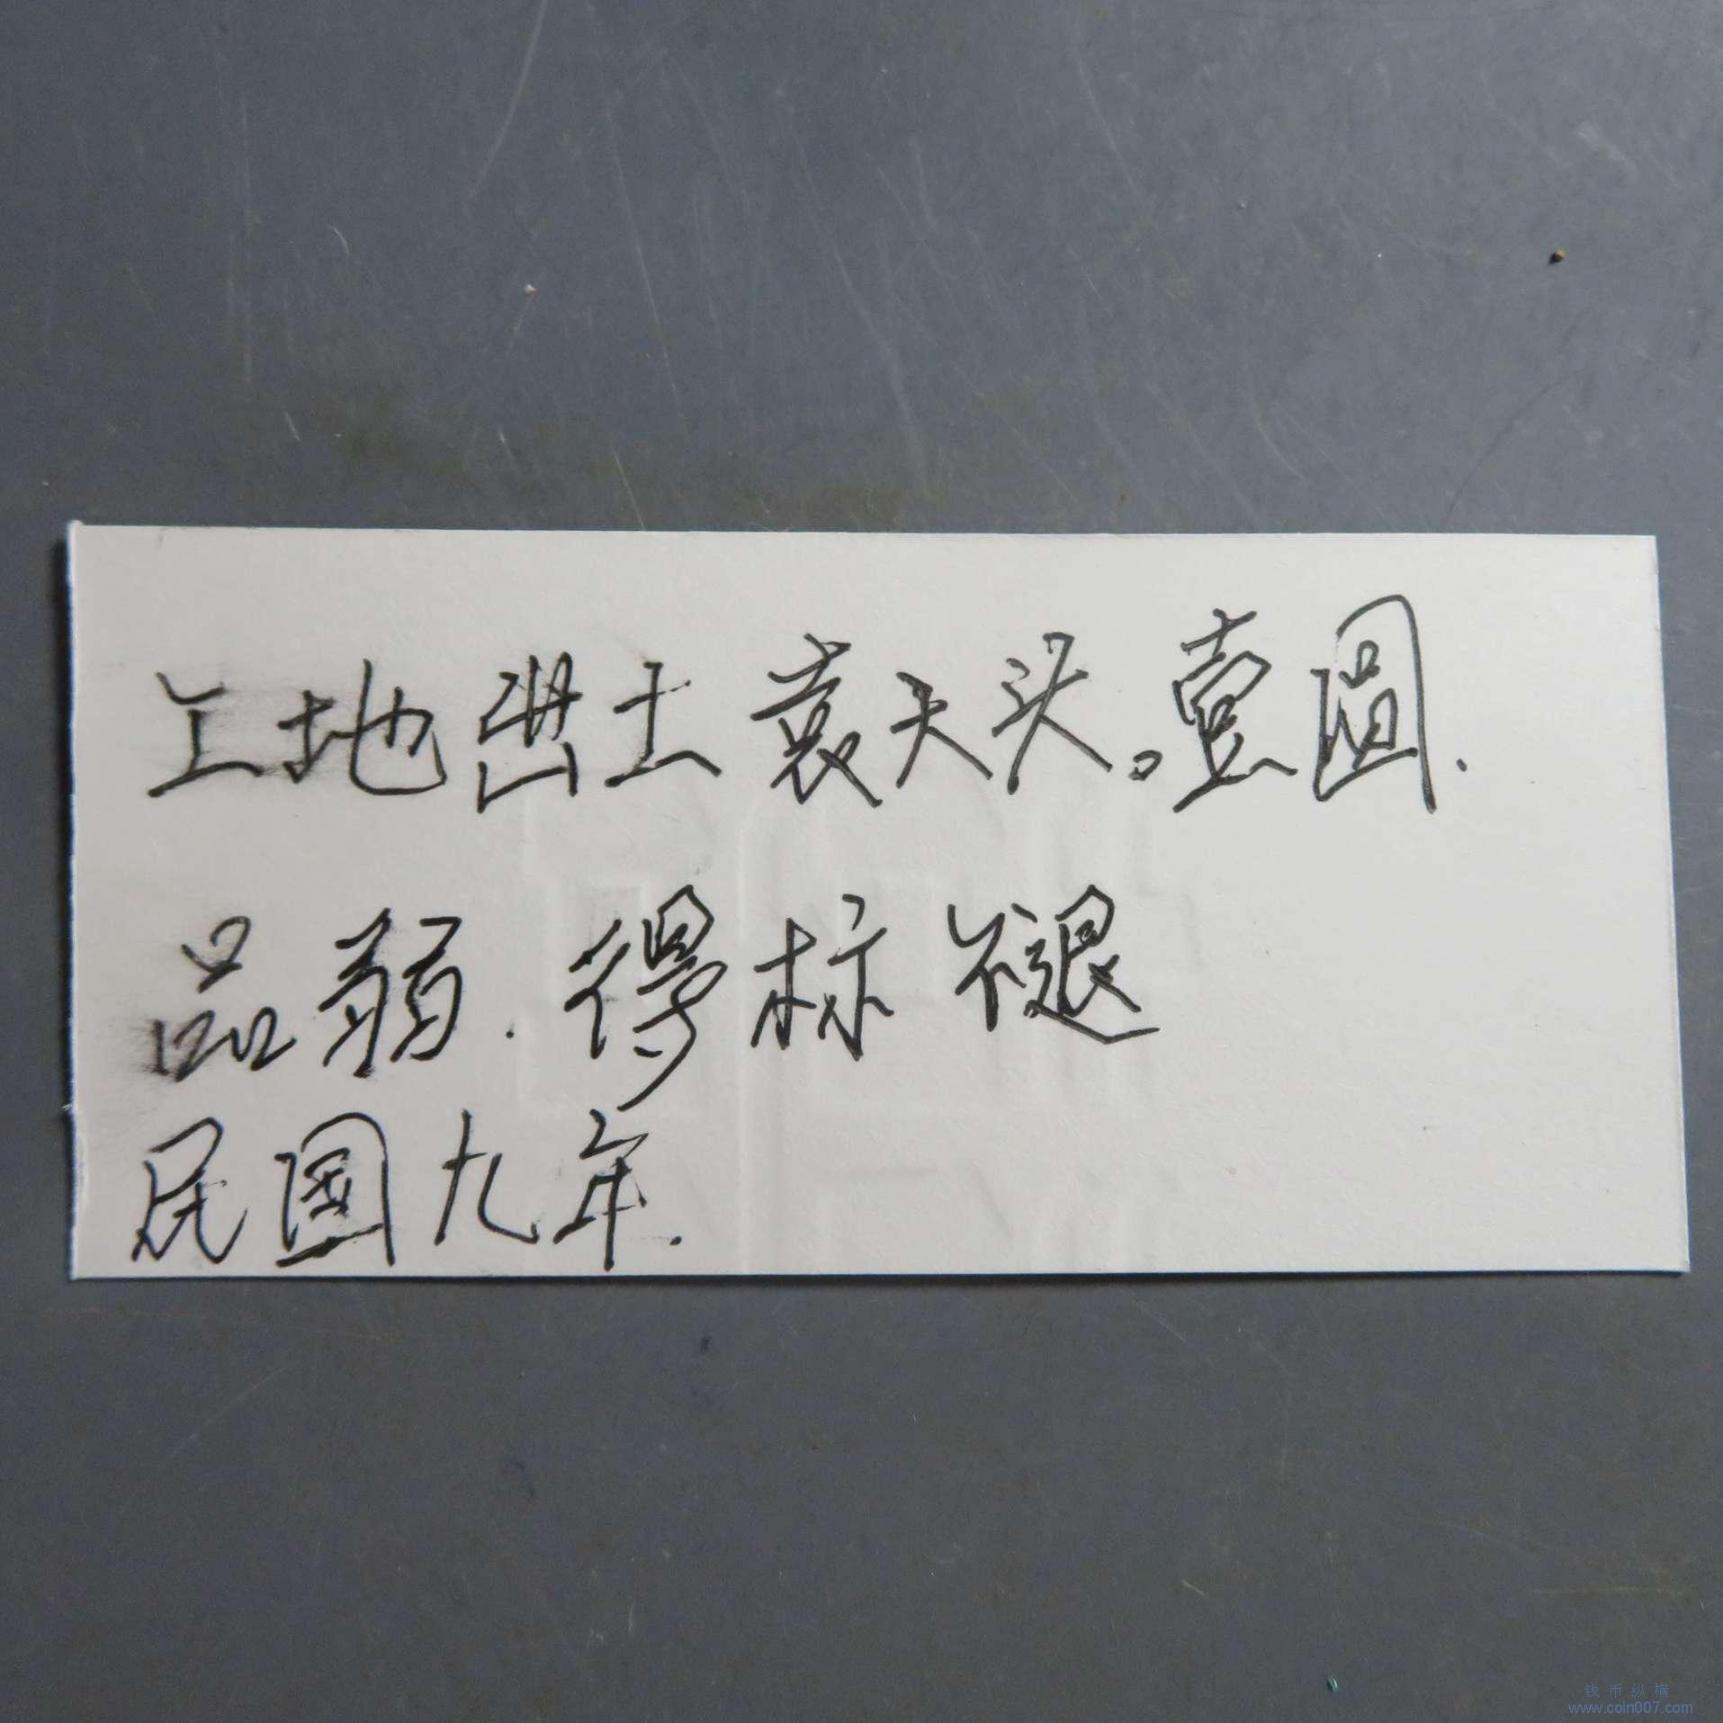 土地出土袁大头。壹圆.
品弱.得标不褪
民国九年.
钱币纵横
www.coin007.com